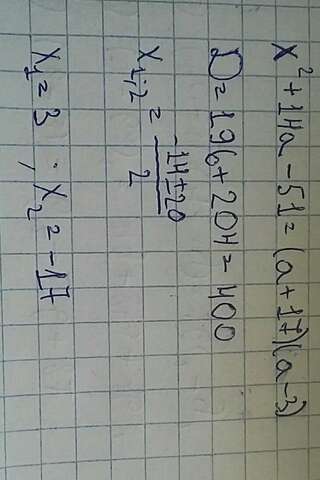 x² + 14a - 51 = (a + 17)(a - 3)
D = 196 + 204 = 400
x₁,₂ = (-14 ± 20) / 2
x₁ = 3 ; x₂ = -17